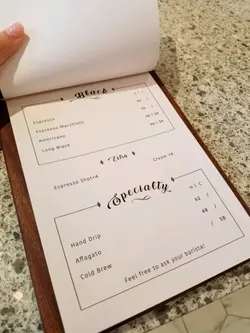 Black
H I C
Espresso
Espresso Macchiato
Americano
Long Black
Extra
Espresso Shot+4
Cream +4
Specialty
H I C
Hand Drip 52 /
Affagato 48 /
Cold Brew / 58
Feel free to ask your barista!